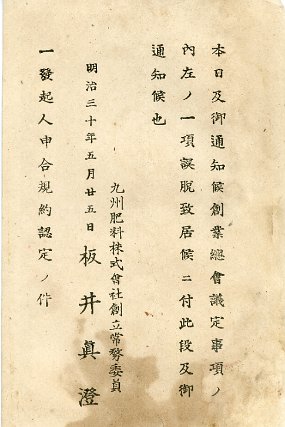 本日及御通知候創業總會議定事項ノ
內左ノ一項誤脫致居候ニ付此段及御
通知候也
明治三十年五月廿五日
九州肥料株式會社創立常務委員
板井眞澄
一發起人申合規約認定ノ件